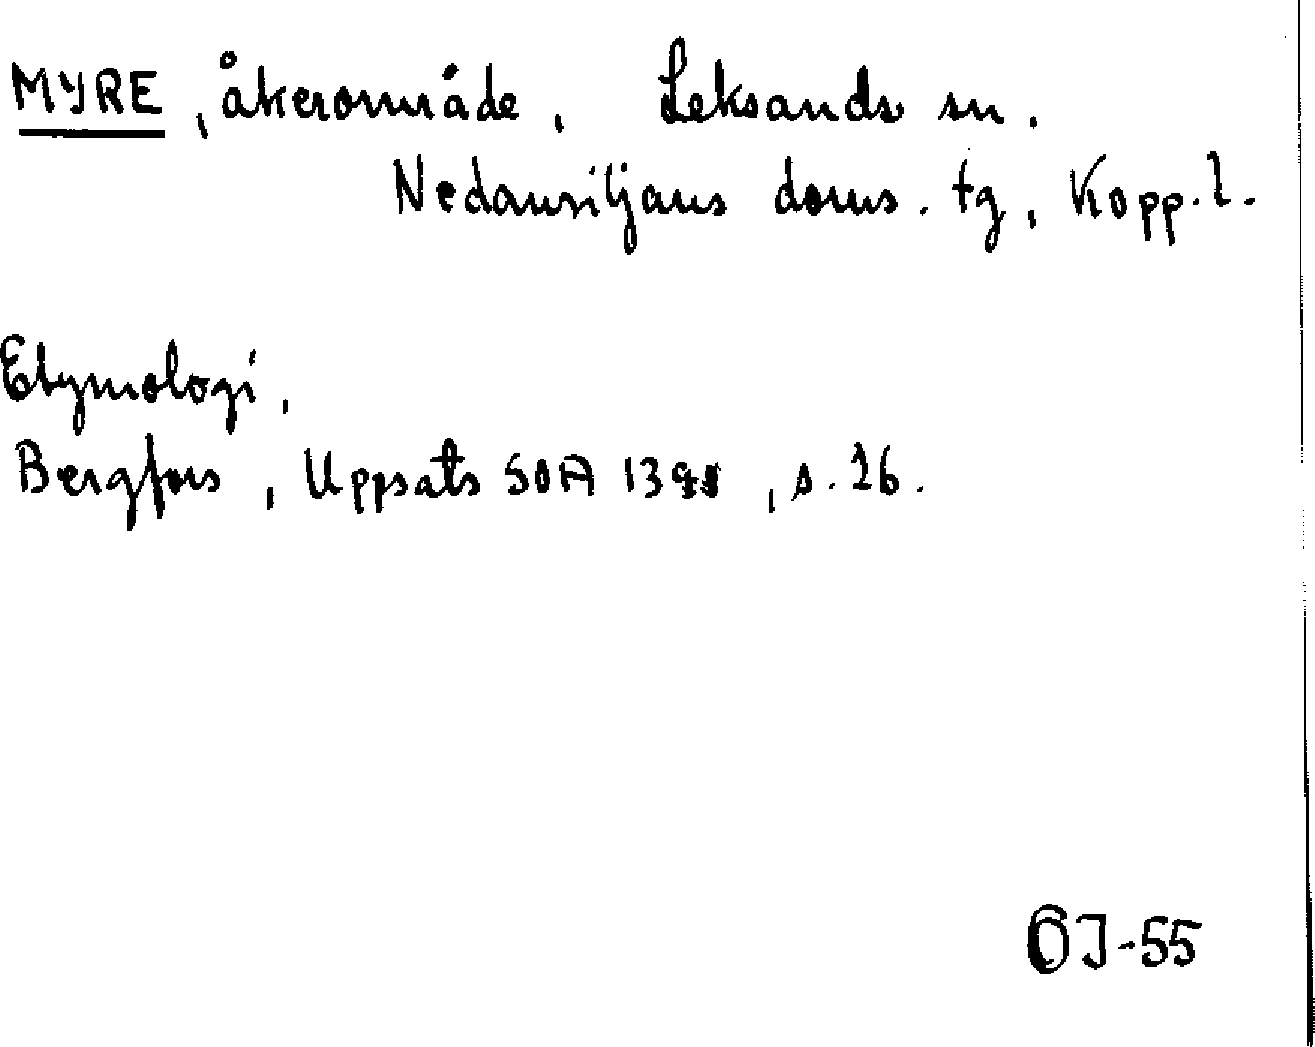 MYRE, åkerområde, Leksands sn.
Nedansiljans doms. tg, Kopp. l.
Etymologi,
Bergfors, Uppsats SOA, s. 26.
OJ-55